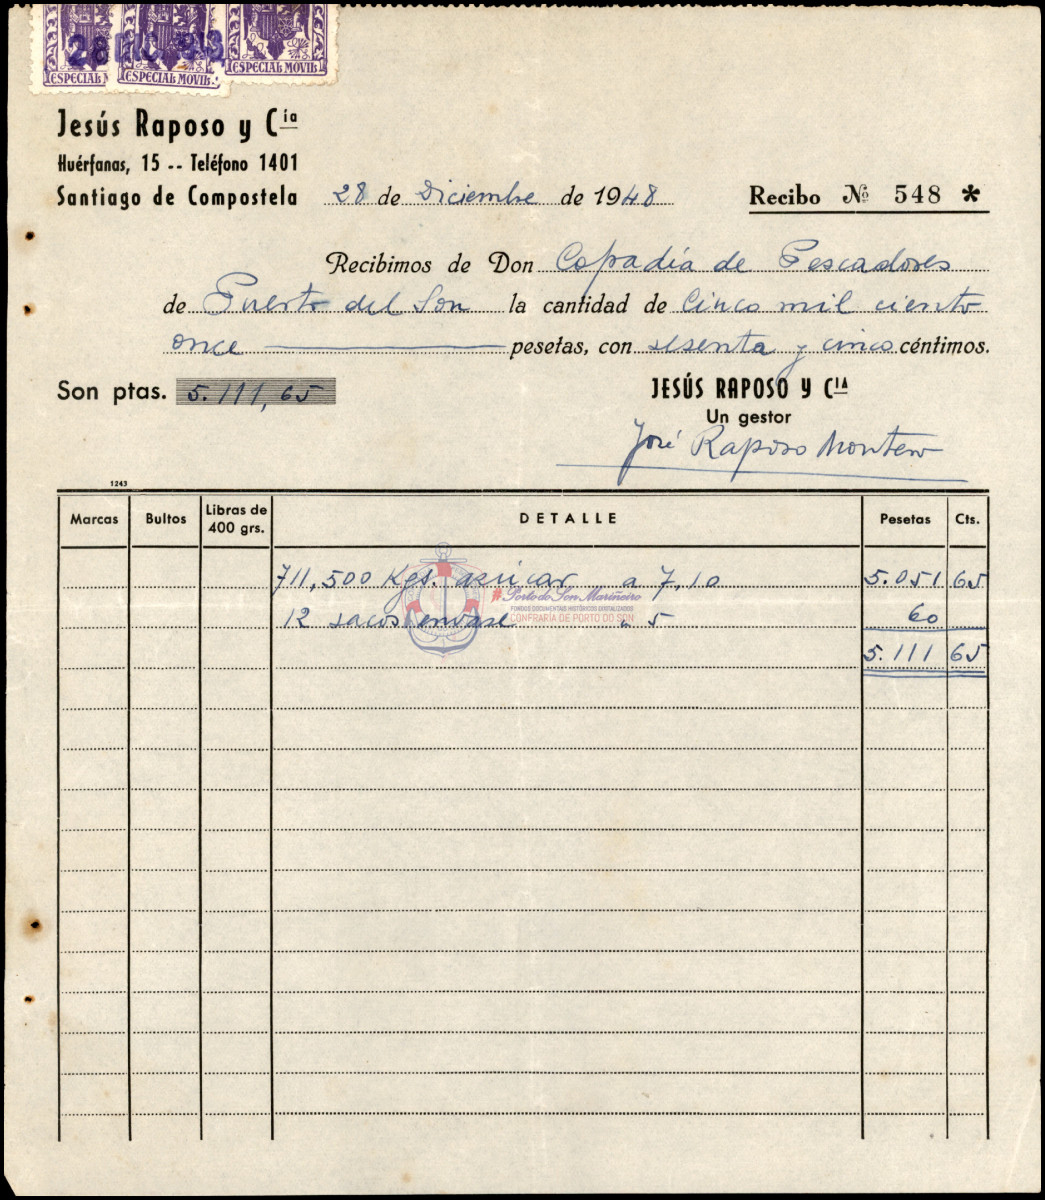 28 DIC. 1948
ESPECIAL MOVIL
ESPECIAL MOVIL
ESPECIAL MOVIL
Jesús Raposo y Cía
Huérfanas, 15 -- Teléfono 1401
Santiago de Compostela 28 de Diciembre de 1948 Recibo № 548 *
Recibimos de Don Cofradía de Pescadores
de Puerto del Son la cantidad de Cinco mil ciento
once pesetas, con sesenta y cinco céntimos.
Son ptas. 5.111,65
JESÚS RAPOSO Y CIA
Un gestor
José Raposo Montero
1243
Marcas Bultos Libras de 400 grs. DETALLE Pesetas Cts.
711,500 Kgs. azúcar a 7,10 5.051 65
#PortodoSonMariñeiro
FONDOS DOCUMENTAIS HISTÓRICOS DIXITALIZADOS
CONFRARÍA DE PORTO DO SON
12 sacos envase a 5 60
5.111 65